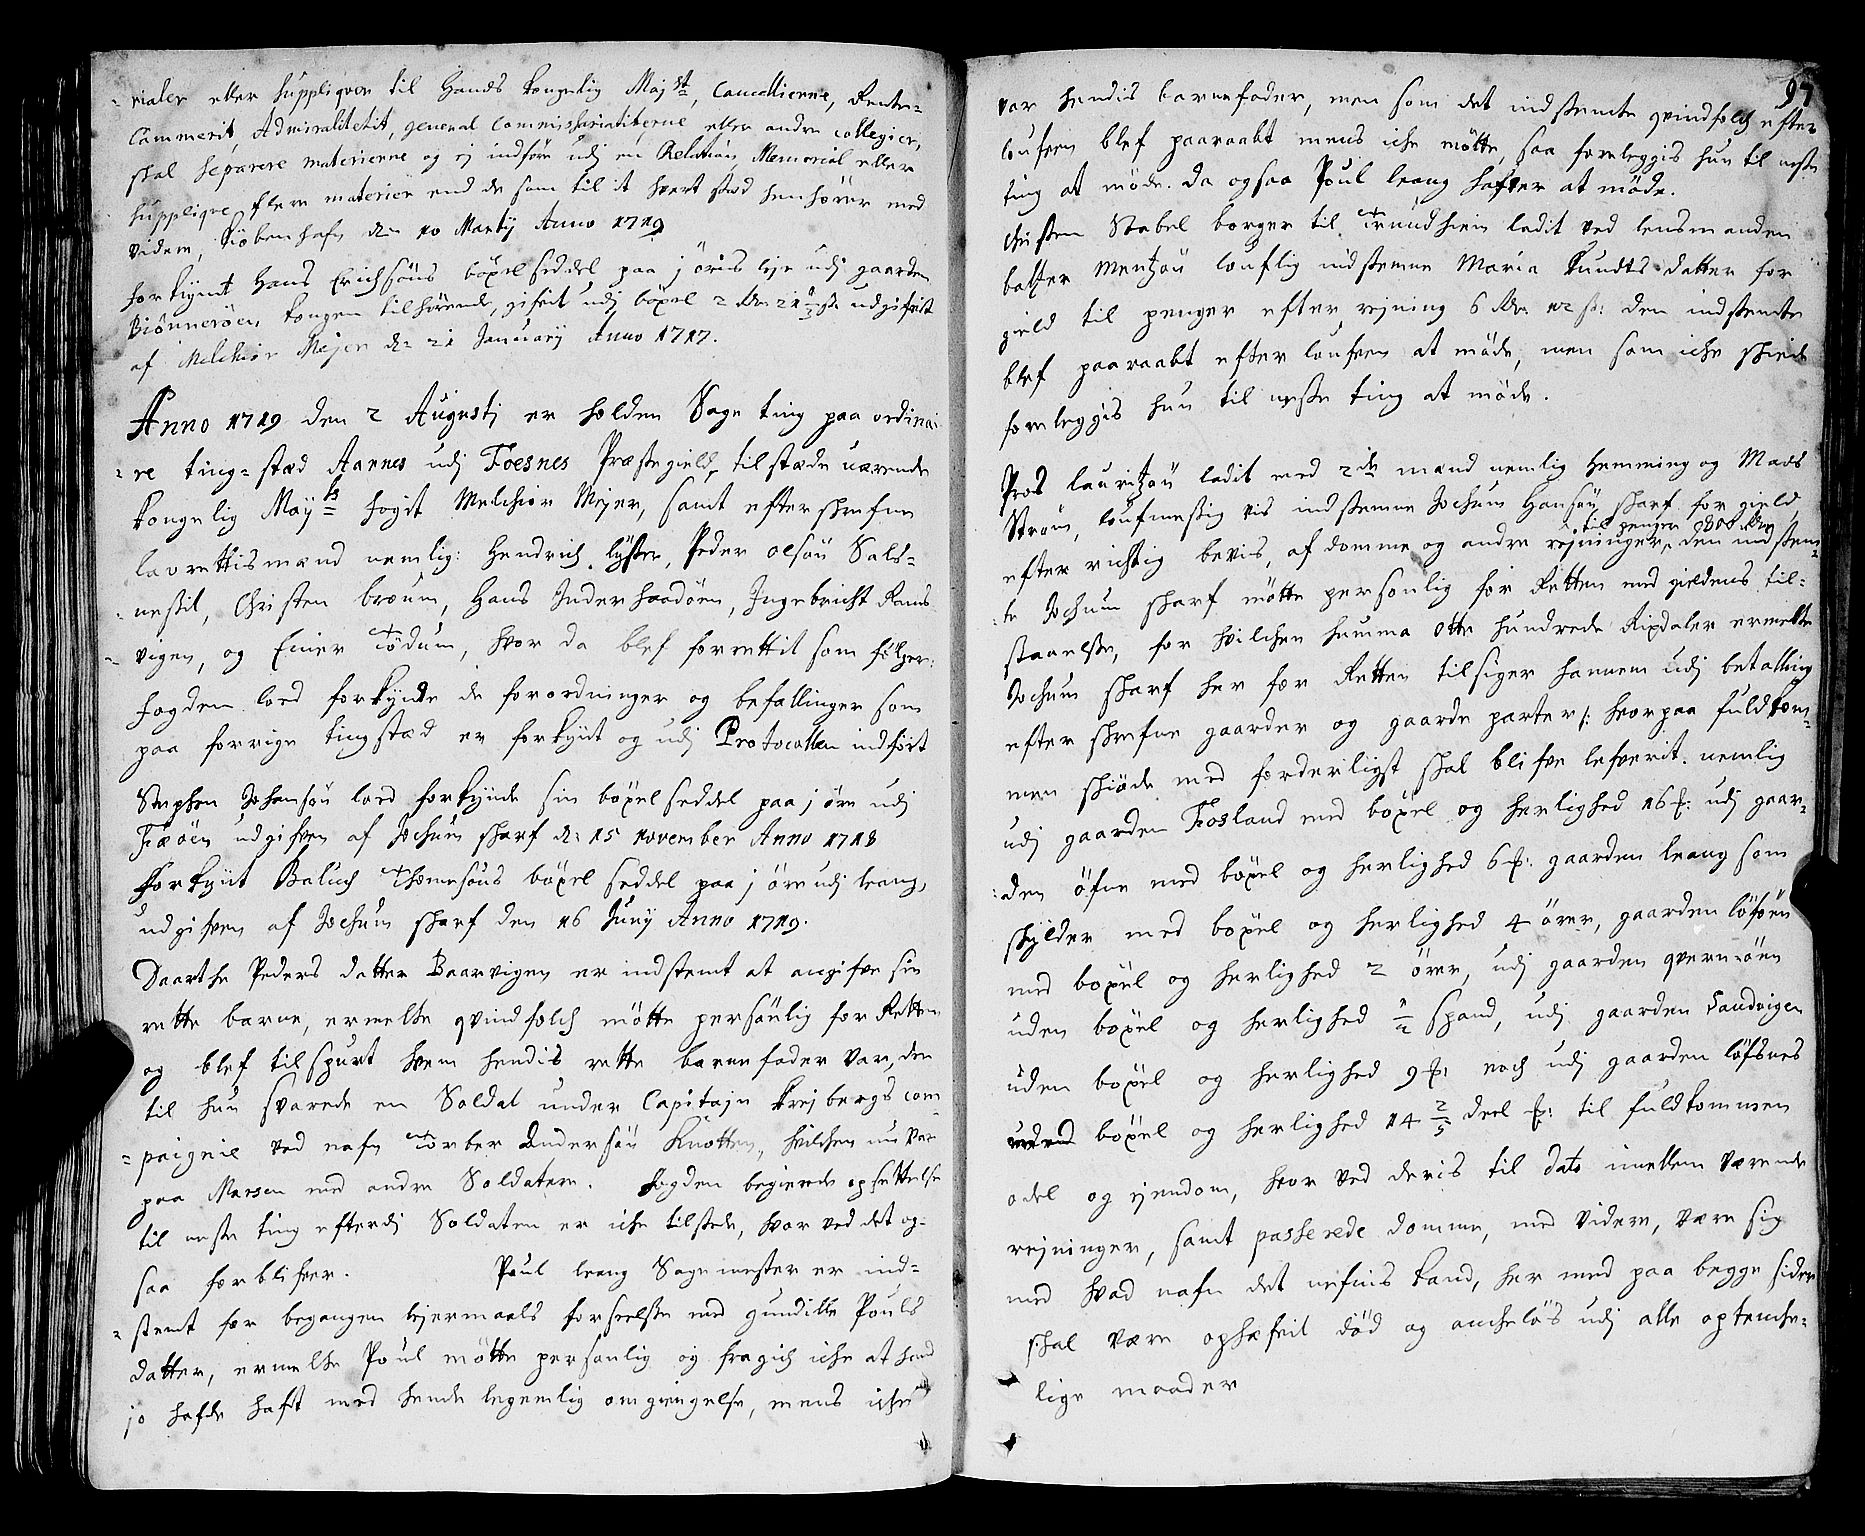 -rialer eller suppliqver til Hands Kongelig Majst., Cancellierne, Rente-
Cammerit, Admiralitetit, general Commissariatiterne eller andre collegier,
skal separere materierne og ej indføre udj en Relation, Memorial eller
supplique flere materier end de som til it hvert sted henhører med
videre, Kiøbenhafn den 10 Martij Anno 1719
forkynt Hans Erichsøns böxel seddel paa j öris leje udj gaarden
Biönneröen, kongen tilhörende, gifvit udj böxel 2 Rdr 21 ß udgifvit
af Melchior Mejer d: 21 Januarij Anno 1717.
Anno 1719 den 2 Augustj er holden Sage ting paa ordinai-
-re ting-sted Aarnes udj Foesnes Præstegield, tilstæde værende
kongelig Mayts fogit Melchior Mejer, samt efterskrefne
lavrettismænd nemlig: Hendrich Lyster, Peder olsön Sals-
-nessit, Christen broum, Hans Inderhaadöen, Ingebricht Rams
-vigen, og Einer Tödum, hvor da blef forrettit som fölger:
fogden loed forkynde de forordninger og befallinger som
paa forrige tingsted er forkynt og udj Protocollen indfört
Stephen Johansön loed forkynde sin böxel seddel paa j öre udj
Fieöen udgifven af Jochum skarf d: 15 november Anno 1718
forkynt Baluch Thomesöns böxel seddel paa j öre udj leang,
udgifven af Jochum skarf den 16 Junij Anno 1719.
Daarthe Peders datter Baarvigen er indstemt at angifve sin
rette barne, ermelte qvindfolch mötte personlig for Retten
og blef tilspurt hvem hendis rette barnefader var, der
til hun svarede en Soldat under Capitajn Krejbergs com
-paignie ved nafn Torber Andersön Knotten, hvilchen nu var
paa Marsen med andre Soldatere. fogden begierede opsettelse
til neste ting efterdj Soldaten er iche tilstede, hvor ved det og-
saa forblifver. Poul leang Sagemester er ind-
-stemt for begangen lejermaals forseelse med gundille Pouls
datter, ermelte Poul mötte personlig og fragich iche at hand
jo hafde haft med hende legemlig omgiengelse, mens iche
97
var hendis barnefader, men som det indstemte qvindfolch efter
loufven blef paaraabt mens iche mötte, saa foreleggis hun til neste
ting at möde. da ogsaa Poul leang hafver at möde.
Christen Stabel borger til Trundhiem ladit ved lensmanden
baltzer Mentzön louflig indstemne Maria Kundts datter for
gield til penger efter rejning 6 Rdr 12 ß: den indstemte
blef paaraabt efter loufven at möde, men som iche skiede
foreleggis hun til neste ting at möde.
Pros lauritzön ladit med 2de mænd nemlig Hemming og Mads
Ström, loufmessig vis indstemne Jochum Hansön skarf for gield,
efter richtig bevis, af domme og andre rejninger til penger 800 Rdr, den indstem-
-te Jochum skarf mötte personlig for Retten med gieldens til-
staaelse, for hvilchen summa Otte hundrede Rixdaler ermelte
Jochum skarf her for Retten tilsiger hannem udj betalling
efter skrefne gaarder og gaarde parter /: hvorpaa fuldkom-
men skiöde med forderligst skal blifve lefverit. nemlig
udj gaarden Fosland med böxel og herlighed 16 ß: udj gaar-
-den öfne med böxel og herlighed 6 ß: gaarden leang som
skylder med böxel og herlighed 4 örer, gaarden löföen
med böxel og herlighed 2 örer, udj gaarden qvernöen
uden böxel og herlighed 1/2 spand, udj gaarden Sandvigen
uden böxel og herlighed 9 ß: noch udj gaarden löfsnes
böxel og herlighed 14 2/5 deel ß: til fuldkommen
odel og ejendom, hvor ved deris til dato imellem værende
rejninger, samt passerede domme, med videre, være sig
med hvad nafn det nefnis kand, her med paa begge sider
skal være ophæfvit död og machelös udj alle optenche-
lige maader